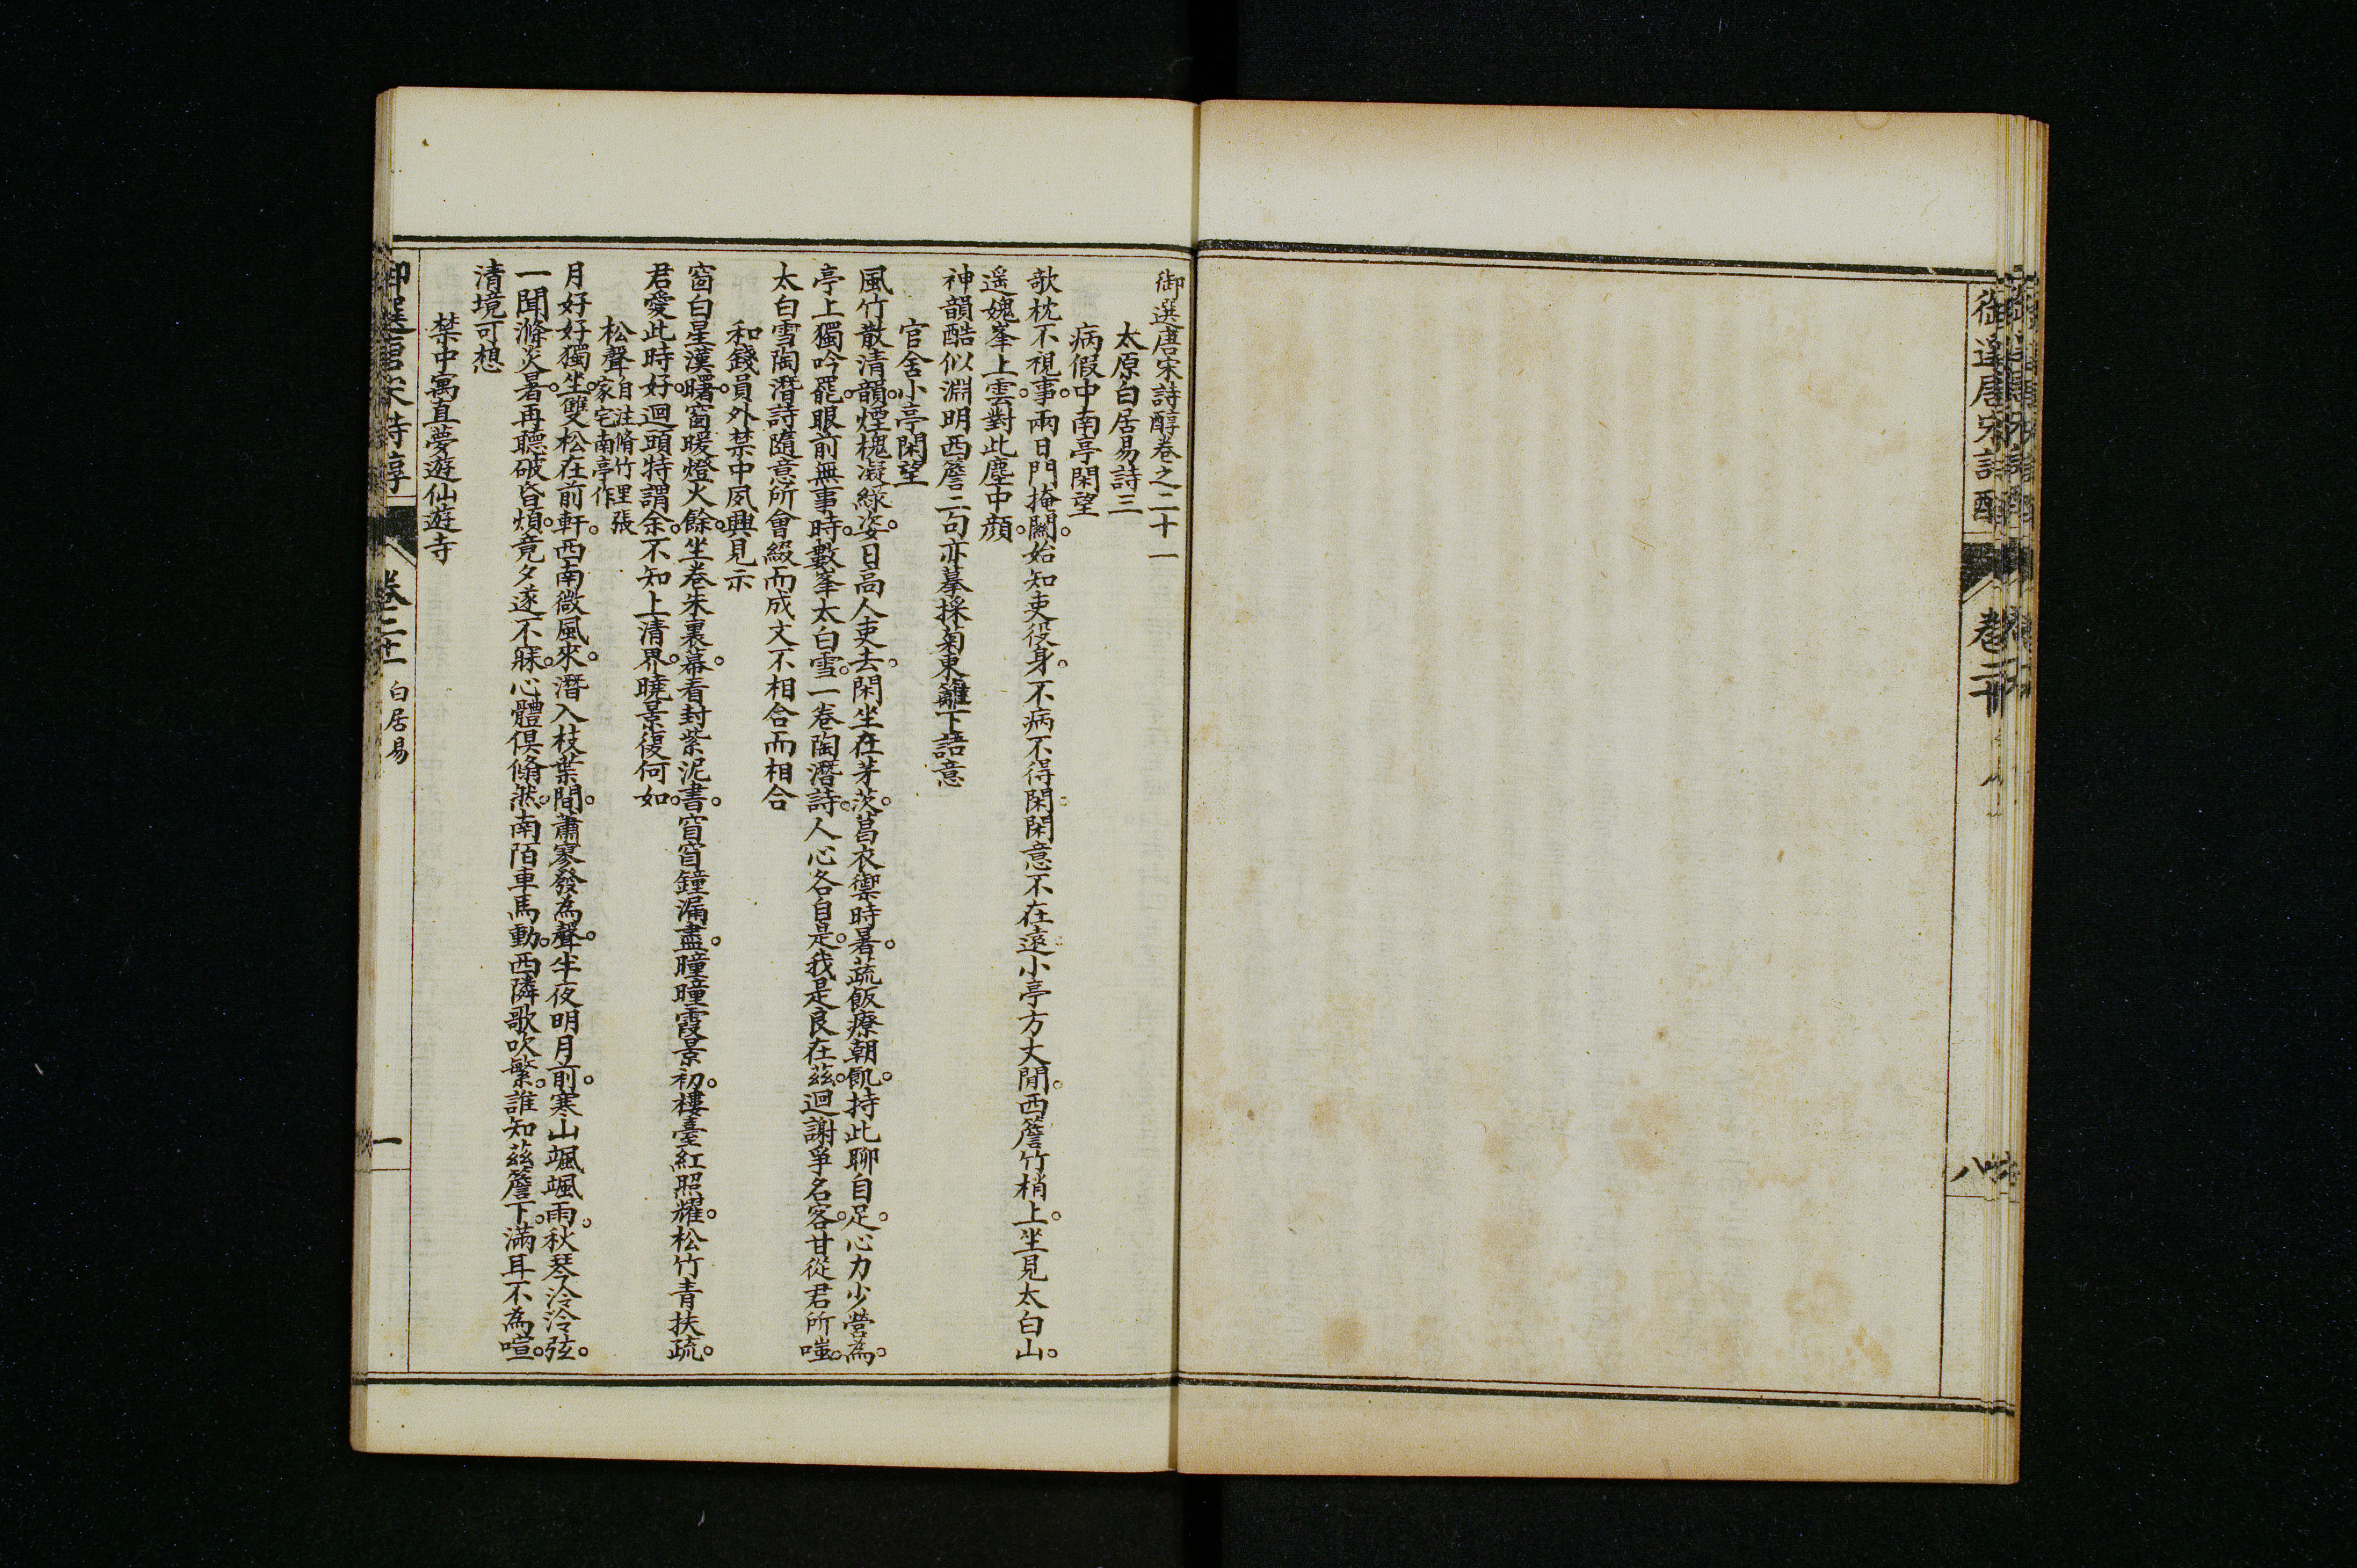 御選唐宋詩醇卷之二十一
太原白居易詩三
病假中南亭閑望
欹枕不視事。兩日門掩關。始知吏役身。不病不得閑。閑意不在遠。小亭方丈間。西簷竹梢上。坐見太白山。
遥媿峯上雲。對此塵中顔。
神韻酷似淵明西簷二句亦摹採菊東籬下語意
官舍小亭閑望
風竹散清韻。煙槐凝綠姿。日高人吏去。閑坐在茅茨。葛衣禦時暑。蔬飯療朝飢。持此聊自足。心力少營為。
亭上獨吟罷。眼前無事時。數峯太白雪。一卷陶潛詩。人心各自是。我是良在茲。迴謝爭名客。甘從君所嗤。
太白雪陶潛詩隨意所會綴而成文不相合而相合
和錢員外禁中夙興見示
窗白星漢曙。窗暖燈火餘。坐卷朱裏幕。看封紫泥書。窅窅鐘漏盡。曈曈霞景初。樓臺紅照耀。松竹青扶疏。
君愛此時好。迴頭特謂余。不知上清界。曉景復何如。
松聲 自注脩竹里張家宅南亭作
月好好獨坐。雙松在前軒。西南微風來。潛入枝葉間。蕭寥發為聲。半夜明月前。寒山颯颯雨。秋琴泠泠弦。
一聞滌炎暑。再聽破昏煩。竟夕遂不寐。心體俱翛然。南陌車馬動。西隣歌吹繁。誰知茲簷下。滿耳不為喧。
清境可想
禁中寓直夢遊仙遊寺
卷二十一 白居易 一